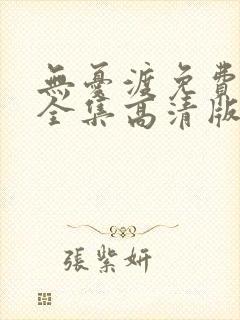 無憂渡免費
全集高清版
張紫妍